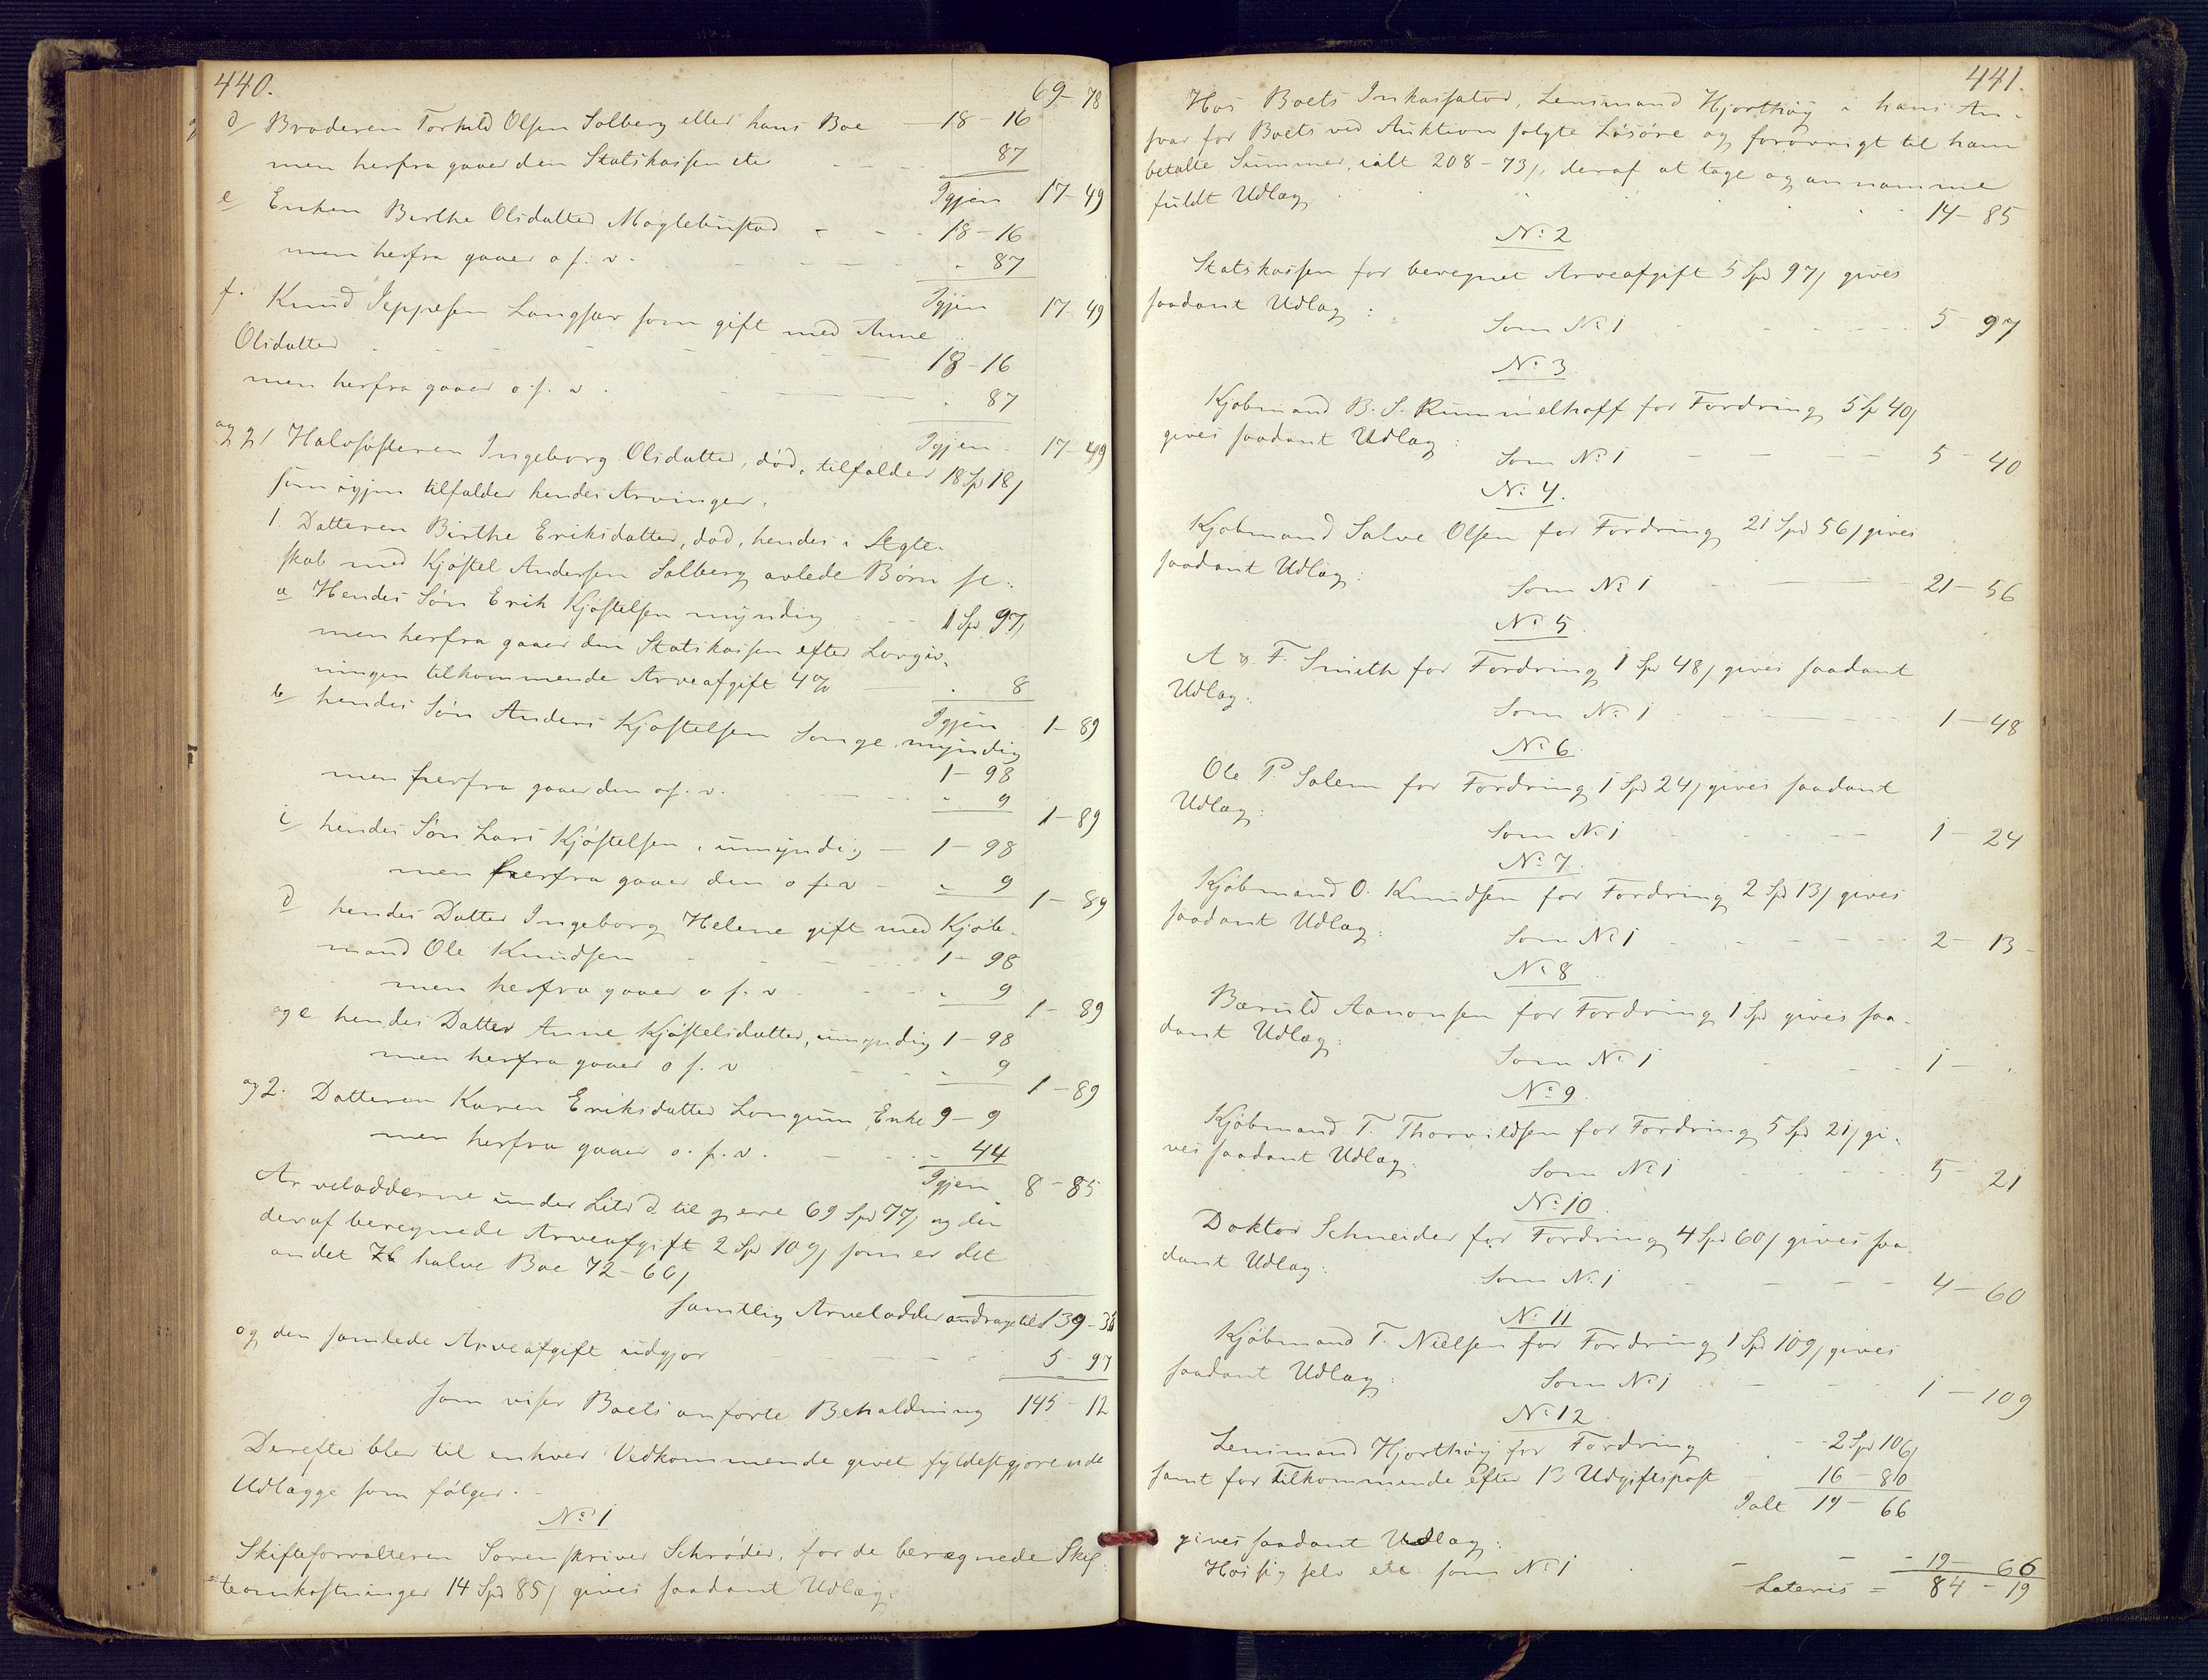 440.
69-78
d/ Broderen Torkild Olsen Solberg eller hans Boe 18-16
men herfra gaaer den Statskassen etc - - 87
Igjen 17-49
e/ Enken Birthe Olsdatter Møglebustad - - 18-16
men herfra gaaer o s: v. - - " 87
Igjen 17-49
f. Knud Jeppesen Langsæv som gift med Anne
Olsdatter - - - 18-16
men herfra gaaer o. s. v. - " 87
Igjen 17-49
og g/ Halvsøsteren Ingeborg Olsdatter, død, tilfalder 18 Spd 18/
som igjen tilfalder hendes Arvinger.
1. Datteren Birthe Eriksdatter, død, hendes i Ægte-
skab med Kjøstel Andersen Solberg avlede Børn sc:
a Hendes Søn Erik Kjøstelsen myndig - - 1 Spd 97/
men herfra gaaer den Statskassen efter Lovgiv-
ningen tilkommende Arveafgift 4% - " 8
Igjen 1-89
b hendes Søn Anders Kjøstelsen Songe, myndig
1-98
men herfra gaaer den o s. v. - - " 9
1-89
c/ hendes Søn Lars Kjøstelsen, umyndig - 1-98
men herfra gaaer den o s. v - " 9
1-89
d hendes Datter Ingeborg Helene gift med Kjøb-
mand Ole Knudsen - - 1-98
men herfra gaaer o s. v. - " 9
1-89
og e hendes Datter Anne Kjøstelsdatter, umyndig 1-98
men herfra gaaer o s. v - " 9
1-89
og 2. Datteren Karen Eriksdatter Longum, Enke 9-9
men herfra gaaer o. s. v. - - 44
Igjen 8-85
Arvelodderne under Litr d. til g ere 69 Spd 77/ og den
deraf beregnede Arveafgift 2 Spd 109/ som er det
andet halve Boe 72-66/
samtlig Arvelodder andrage til 139-35
og den samlede Arveafgift udgjør - - - 5-97
som viser Boets anførte Beholdning 145-12
Derefter blev til enhver Vedkommende givet fyldestgjørende
Udlægge som følger. -
No 1
Skifteforvalteren Sorenskriver Schrøder, for de beregnede Skif-
teomkostninger 14 Spd 85/ gives saadant Udlæg:
441.
Hos Boets Inkassator, Lensmand Hjorthøy i hans An-
svar for Boets ved Auktion solgte Løsøre og forøvrigt til ham
betalte Summer, ialt 208-73/, deraf at tage og annamme
fuldt Udlæg . . . 14-85
No 2
Statskassen for beregnet Arveafgift 5 Spd 97/ gives
saadant Udlæg:
Som No 1 - - - 5-97
No 3
Kjøbmand B. S. Rummelhoff for Fordring 5 Sp 40/
gives saadant Udlæg:
Som No 1 - - - 5-40
No 4.
Kjøbmand Salve Olsen for Fordring 21 Spd 56/ gives
saadant Udlæg:
Som No 1 - - - 21-56
No 5.
A & F. Smith for Fordring 1 Spd 48/ gives saadant
Udlæg:
Som No 1 - - - 1-48
No 6
Ole P. Salem for Fordring 1 Spd 24/ gives saadant
Udlæg:
Som No 1 - - - 1-24
No 7.
Kjøbmand O. Knudsen for Fordring 2 Spd 13/ gives
saadant Udlæg:
Som No 1 - - - 2-13-
No 8.
Bæruld Aanonsen for Fordring 1 Spd gives saa-
dant Udlæg:
Som No 1 - - 1-"
No 9.
Kjøbmand T. Thorvildsen for Fordring 5 Spd 21/ gi-
ves saadant Udlæg:
Som No 1 - - 5-21
No 10.
Doktor Schneider for Fordring 4 Spd 60/ gives saa-
dant Udlæg:
Som No 1 - - - 4-60
No 11
Kjøbmand T. Nielsen for Fordring 1 Spd 109/ gives
saadant Udlæg:
Som No 1 - - - 1-109
No 12.
Lensmand Hjorthøy for Fordring - - 2 Spd 106/
samt for Tilkommende efter 13 Udgiftspost 16-80
Ialt 19-66
gives saadant Udlæg:
Hos sig selv etc: som No 1 - - - 19-66
Lateris = 84-19